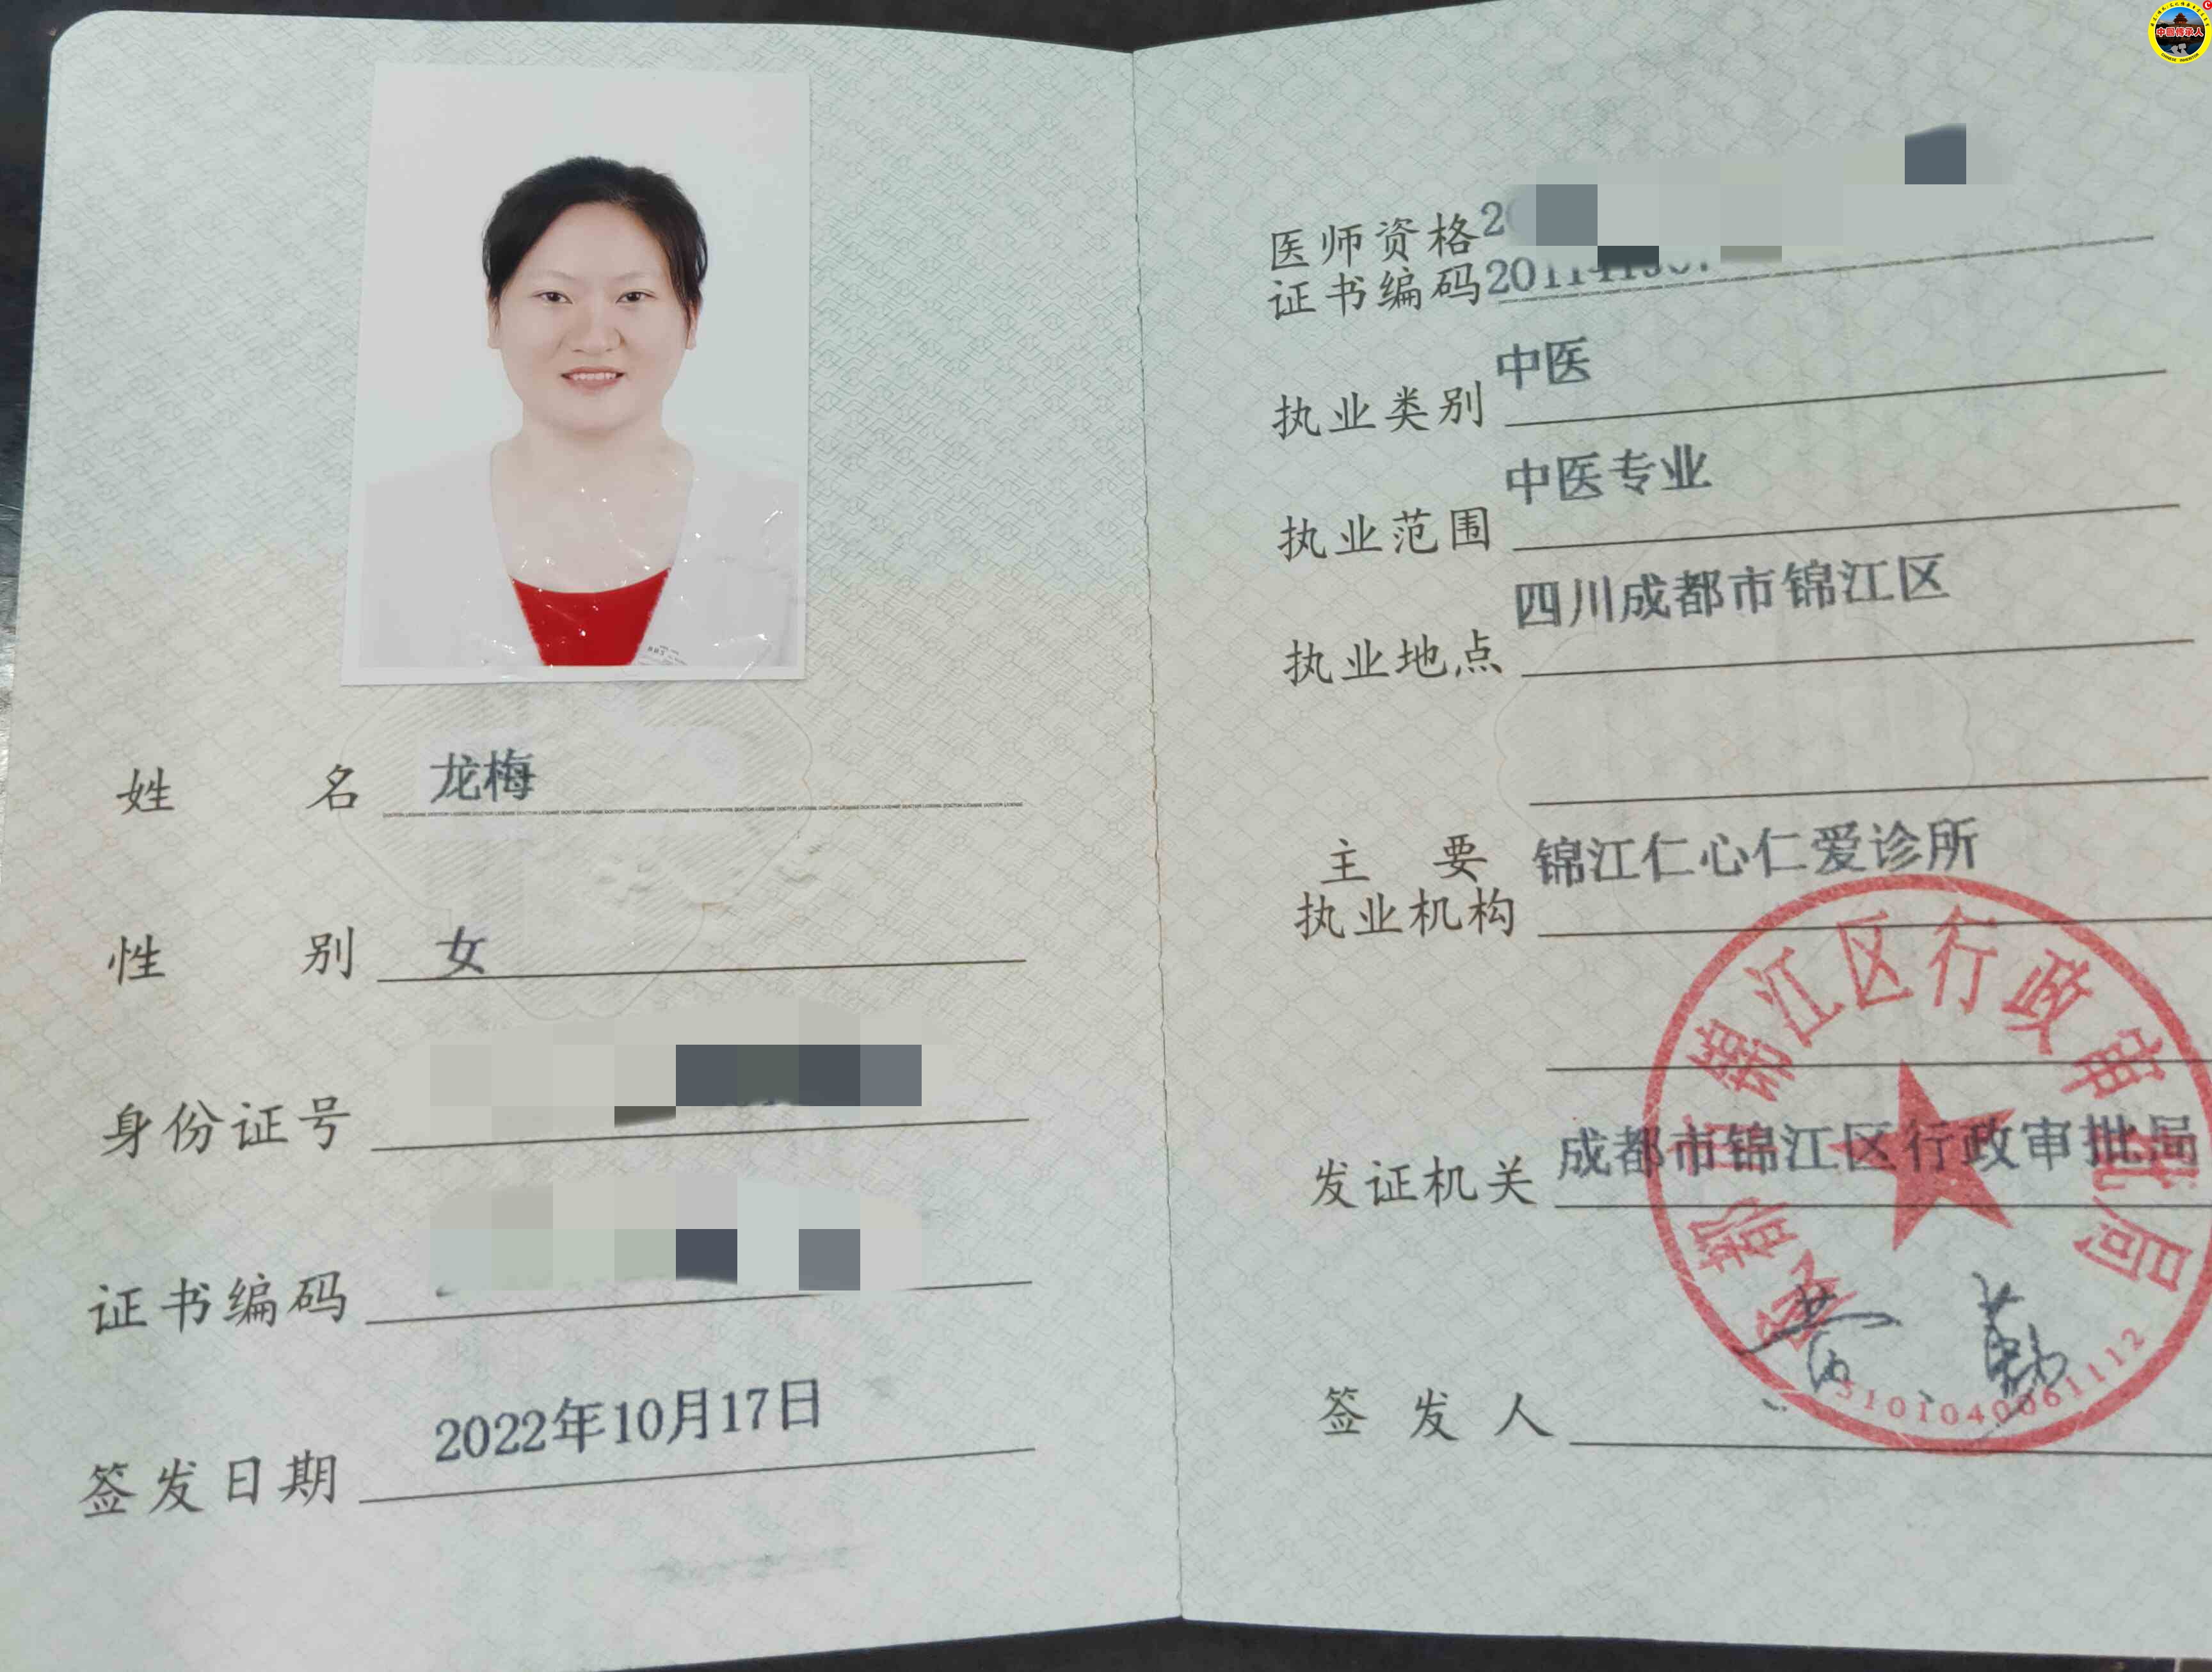 姓名 龙梅
DOCTOR LICENSE DOCTOR LICENSE DOCTOR LICENSE
性别 女
身份证号
证书编码
签发日期 2022年10月17日
医师资格
证书编码
执业类别 中医
执业范围 中医专业
执业地点 四川成都市锦江区
主要 锦江仁心仁爱诊所
执业机构
发证机关 成都市锦江区行政审批局
签发人
成都市锦江区行政审批局
5101040061112
中国传承人